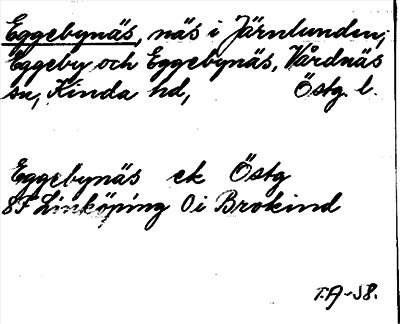 Eggebynäs, näs i Järnlunden,
Eggeby och Eggebynäs, Vårdnäs
sn, Kinda hd, Östg. l.
Eggebynäs ek Östg
8F Linköping Öi Brokind
T.A-58.